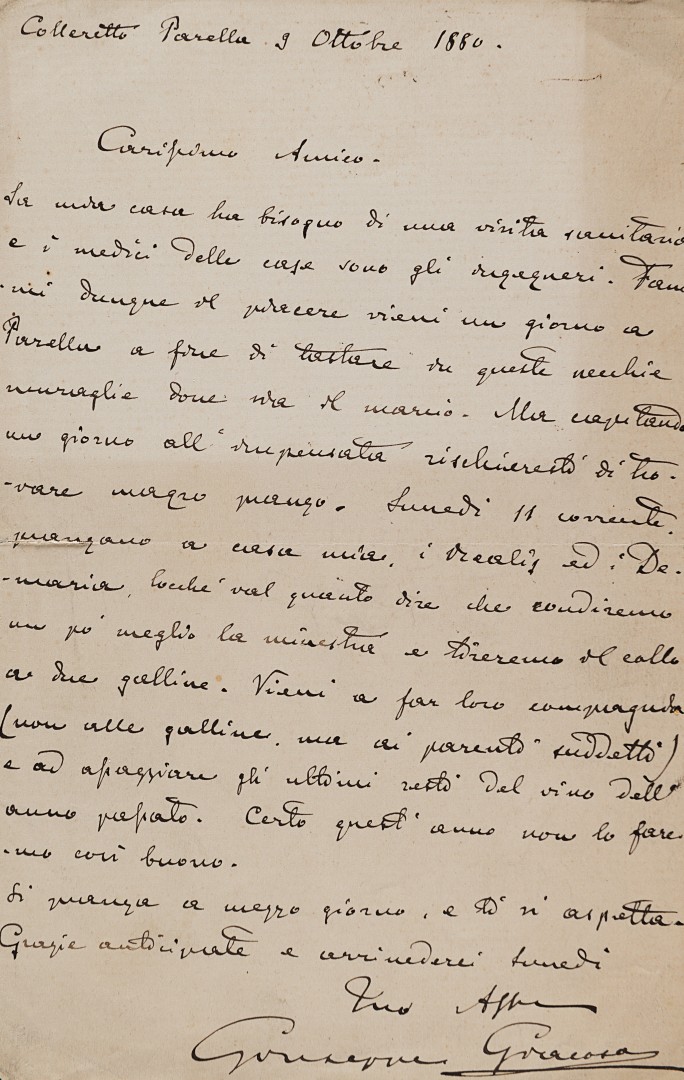 Colleretto Parella 9 Ottobre 1880.
Carissimo Amico.
La mia casa ha bisogno di una visita sanitaria
e i medici delle case sono gli ingegneri. Fam
-mi dunque il piacere vieni un giorno a
Parella a fine di tastare in queste vecchie
muraglie dove sia il marcio. Ma capitando
un giorno all'impensata rischieresti di tro-
-vare magro pranzo. Lunedi 11 corrente,
pranzano a casa mia, i Realis ed i De-
-maria, locché val quanto dire che condiremo
un po' meglio la minestra e tireremo il collo
a due galline. Vieni a far loro compagnia
(non alle galline, ma ai parenti suddetti)
e ad assaggiare gli ultimi resti del vino dell'
anno passato. Certo quest'anno non lo fare-
-mo così buono.
Si pranza a mezzo giorno, e ti si aspetta.
Grazie anticipate e arrivederci Lunedi
Tuo Affmo
Giuseppe Giacosa